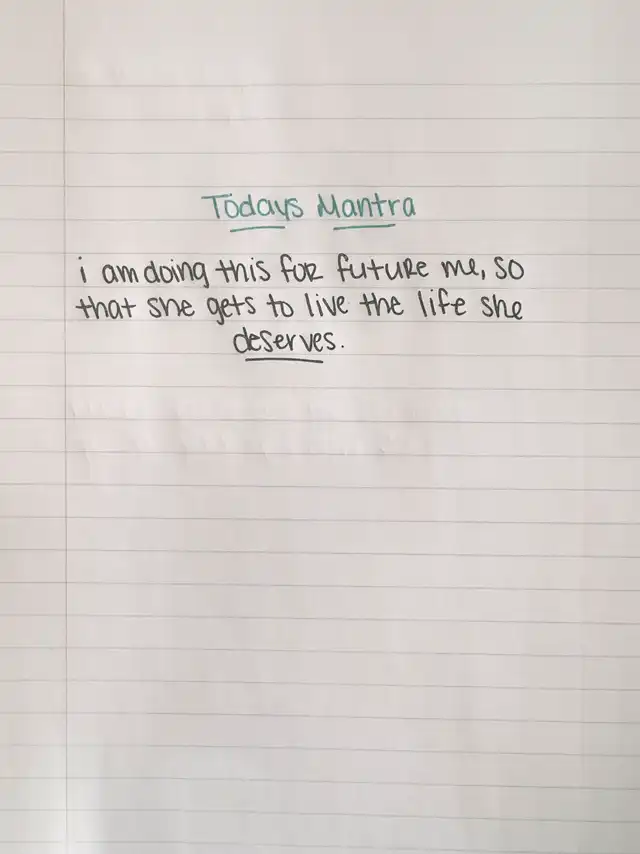 Todays Mantra
i am doing this for future me, so
that she gets to live the life she
deserves.